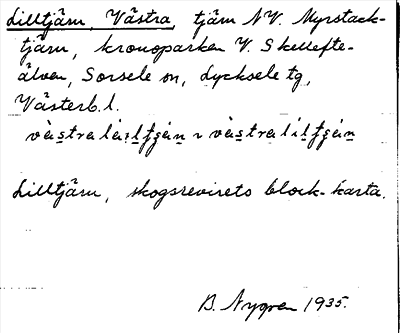 Lilltjärn, Västra, tjärn NV. Myrstack-
tjärn, kronoparken V. Skellefte-
älven, Sorsele sn, Lycksele tg,
Västerb. l.
Lilltjärn, skogsrevirets block-karta.
B. Nygren 1935.